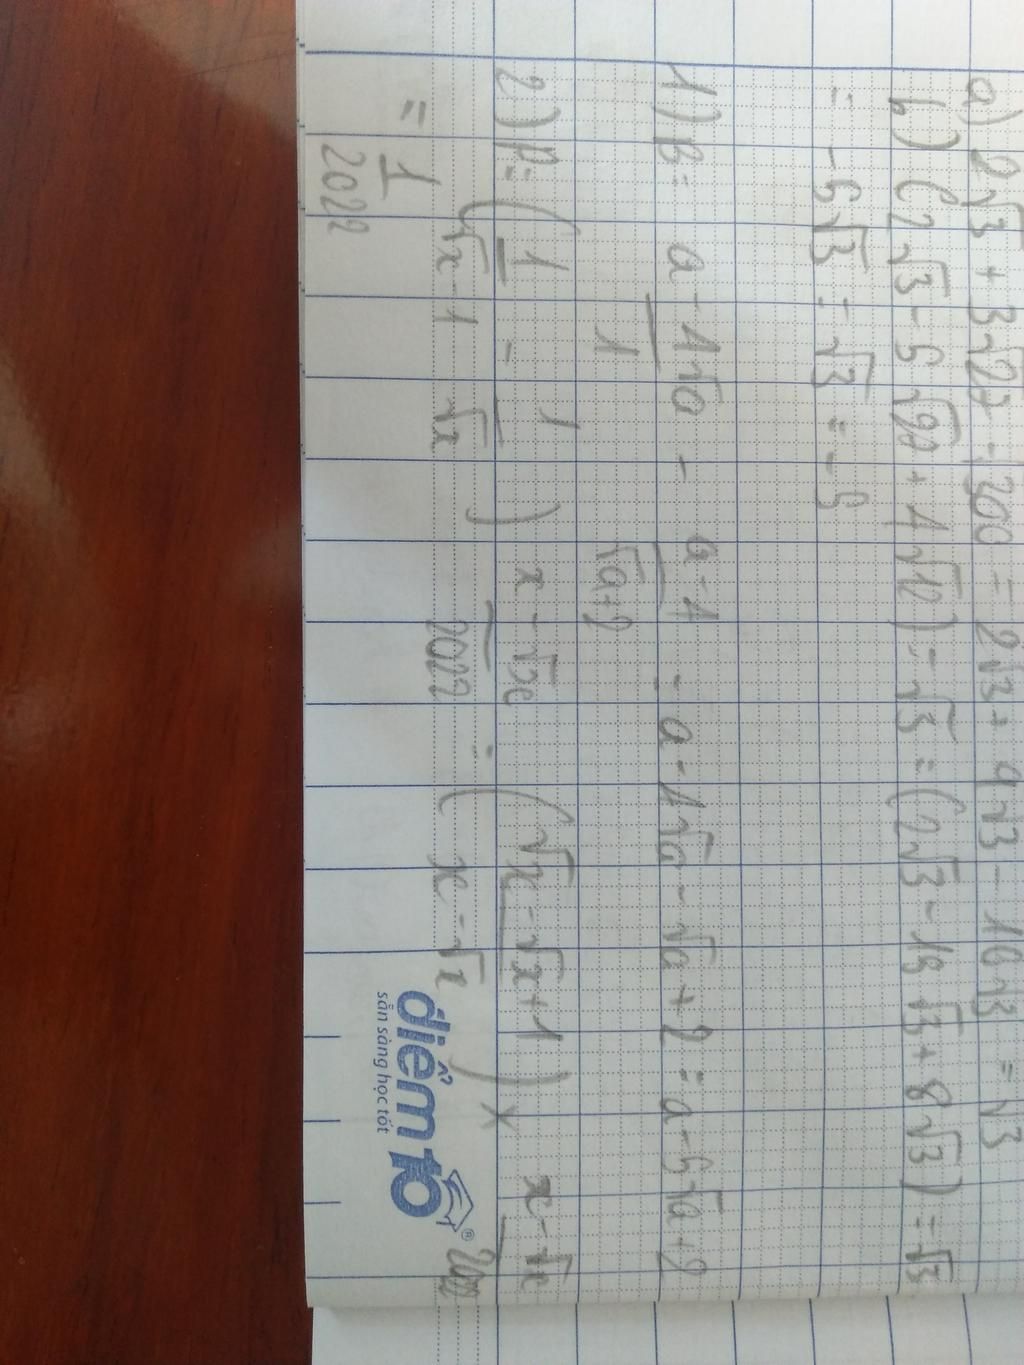 a) 2√3 + 3√27 - √300 = 2√3 + 9√3 - 10√3 = √3
b) (2√3 - 5√27 + 4√12) : √3 = (2√3 - 15√3 + 8√3) : √3
= -5√3 : √3 = -5
1) B = a - 4√a / 1 - a - 4 / √a + 2 = a - 4√a - √a + 2 = a - 5√a + 2
2) P = (1 / √x - 1 - 1 / √x) : x - √x / 2022 = (√x - √x + 1 / x - √x) × x - √x / 2022
= 1 / 2022
điểm 10 ®
sẵn sàng học tốt